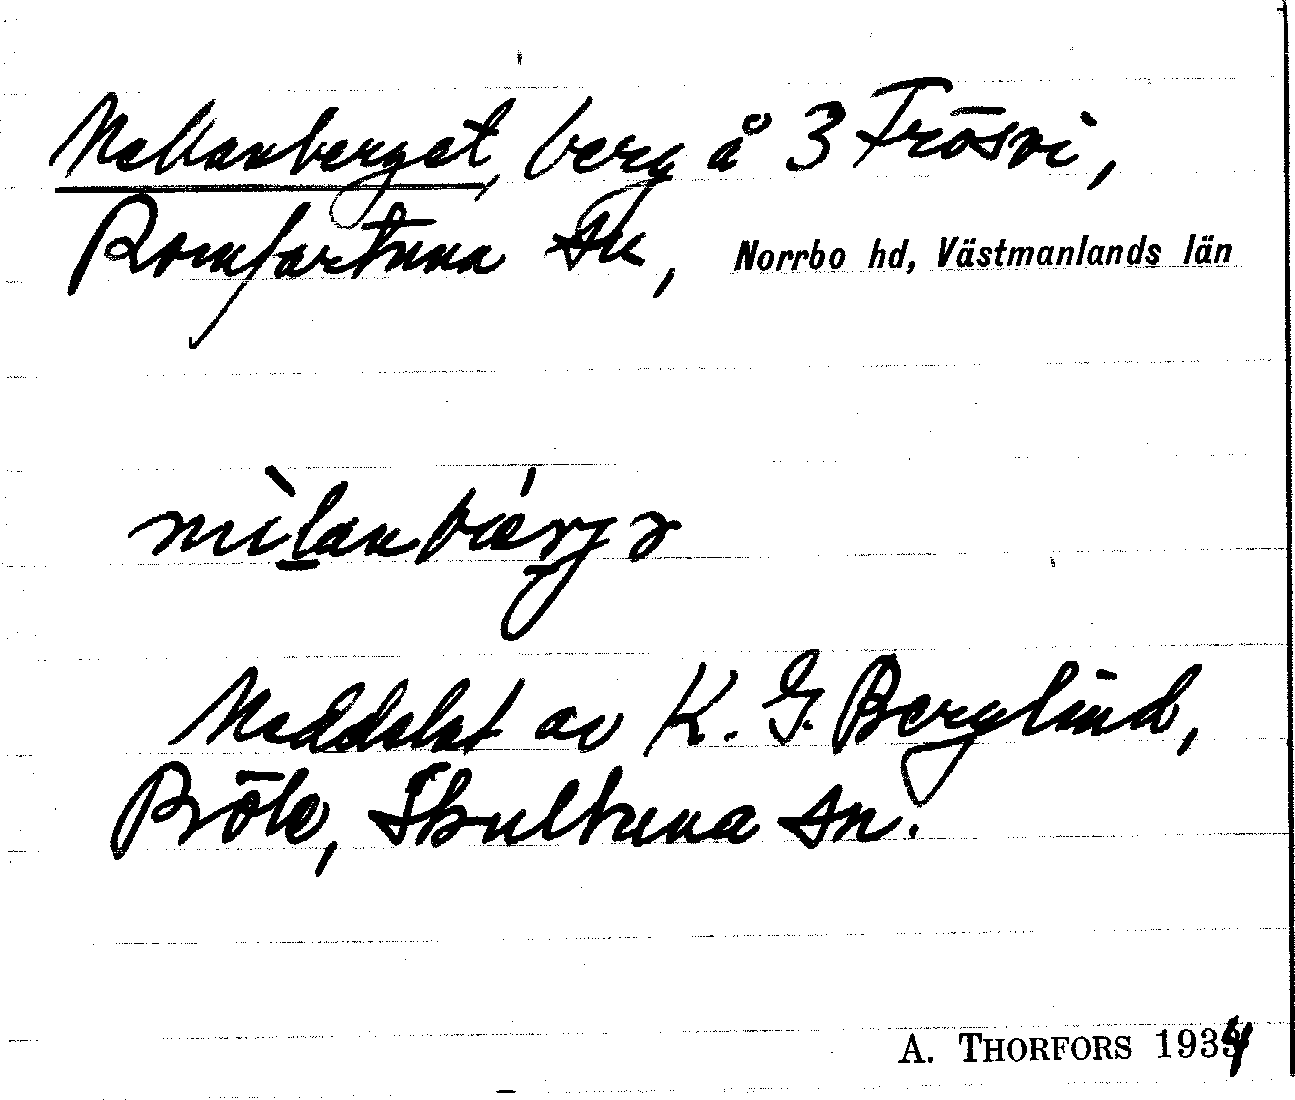 Mellanberget, berg å 3 Frösvi,
Romfartuna sn, Norrbo hd, Västmanlands län
mìlanbárjə
Meddelat av K. G. Berglund,
Bröte, Skultuna sn.
A. THORFORS 1934